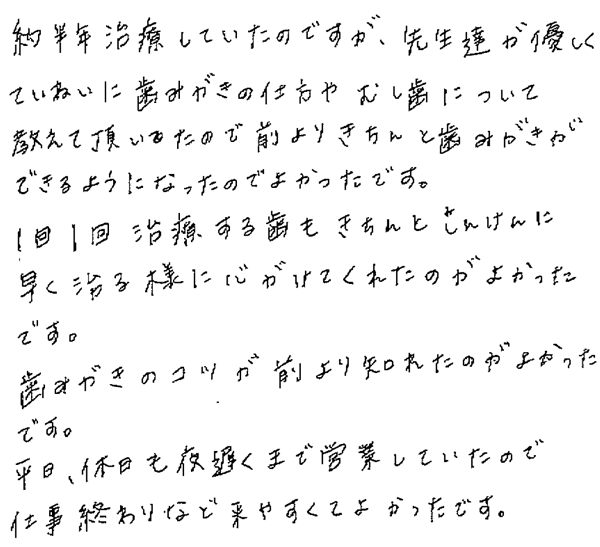 約半年治療していたのですが、先生達が優しく
ていねいに歯みがきの仕方やむし歯について
教えて頂いたので前よりきちんと歯みがきが
できるようになったのでよかったです。
1回1回治療する歯もきちんとしんけんに
早く治る様に心がけてくれたのがよかった
です。
歯みがきのコツが前より知れたのがよかった
です。
平日、休日も夜遅くまで営業していたので
仕事終わりなど来やすくてよかったです。